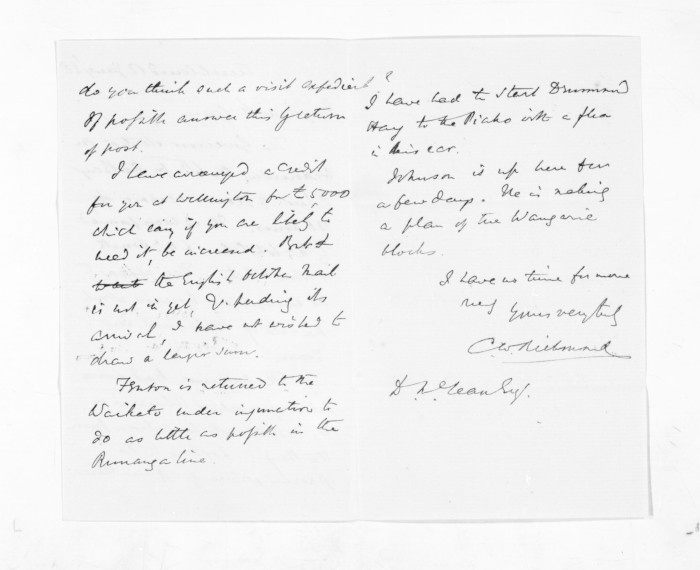 do you think such a visit expedient?
If possible answer this by return
of post.
I have arranged a credit
for you at Wellington for £5000
which can, if you are likely to
need it, be increased. But
the English October Mail
is not in yet, & pending its
arrival, I have not wished to
draw a larger sum.
Fenton is returned to the
Waikato under injunction to
do as little as possible in the
Runanga line.
I have had to start Drummond
Hay to the Piako with a flea
in his ear.
Johnson is up here for
a few days. He is making
a plan of the Wangarei
blocks.
I have no time for more
yours very truly
C.W. Richmond
D. McLean Esq.